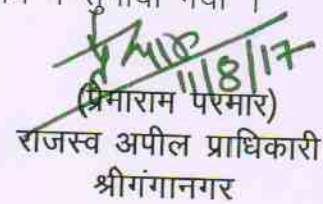 सुनाया गया ।
11/8/17
(प्रेमाराम परमार)
राजस्व अपील प्राधिकारी
श्रीगंगानगर